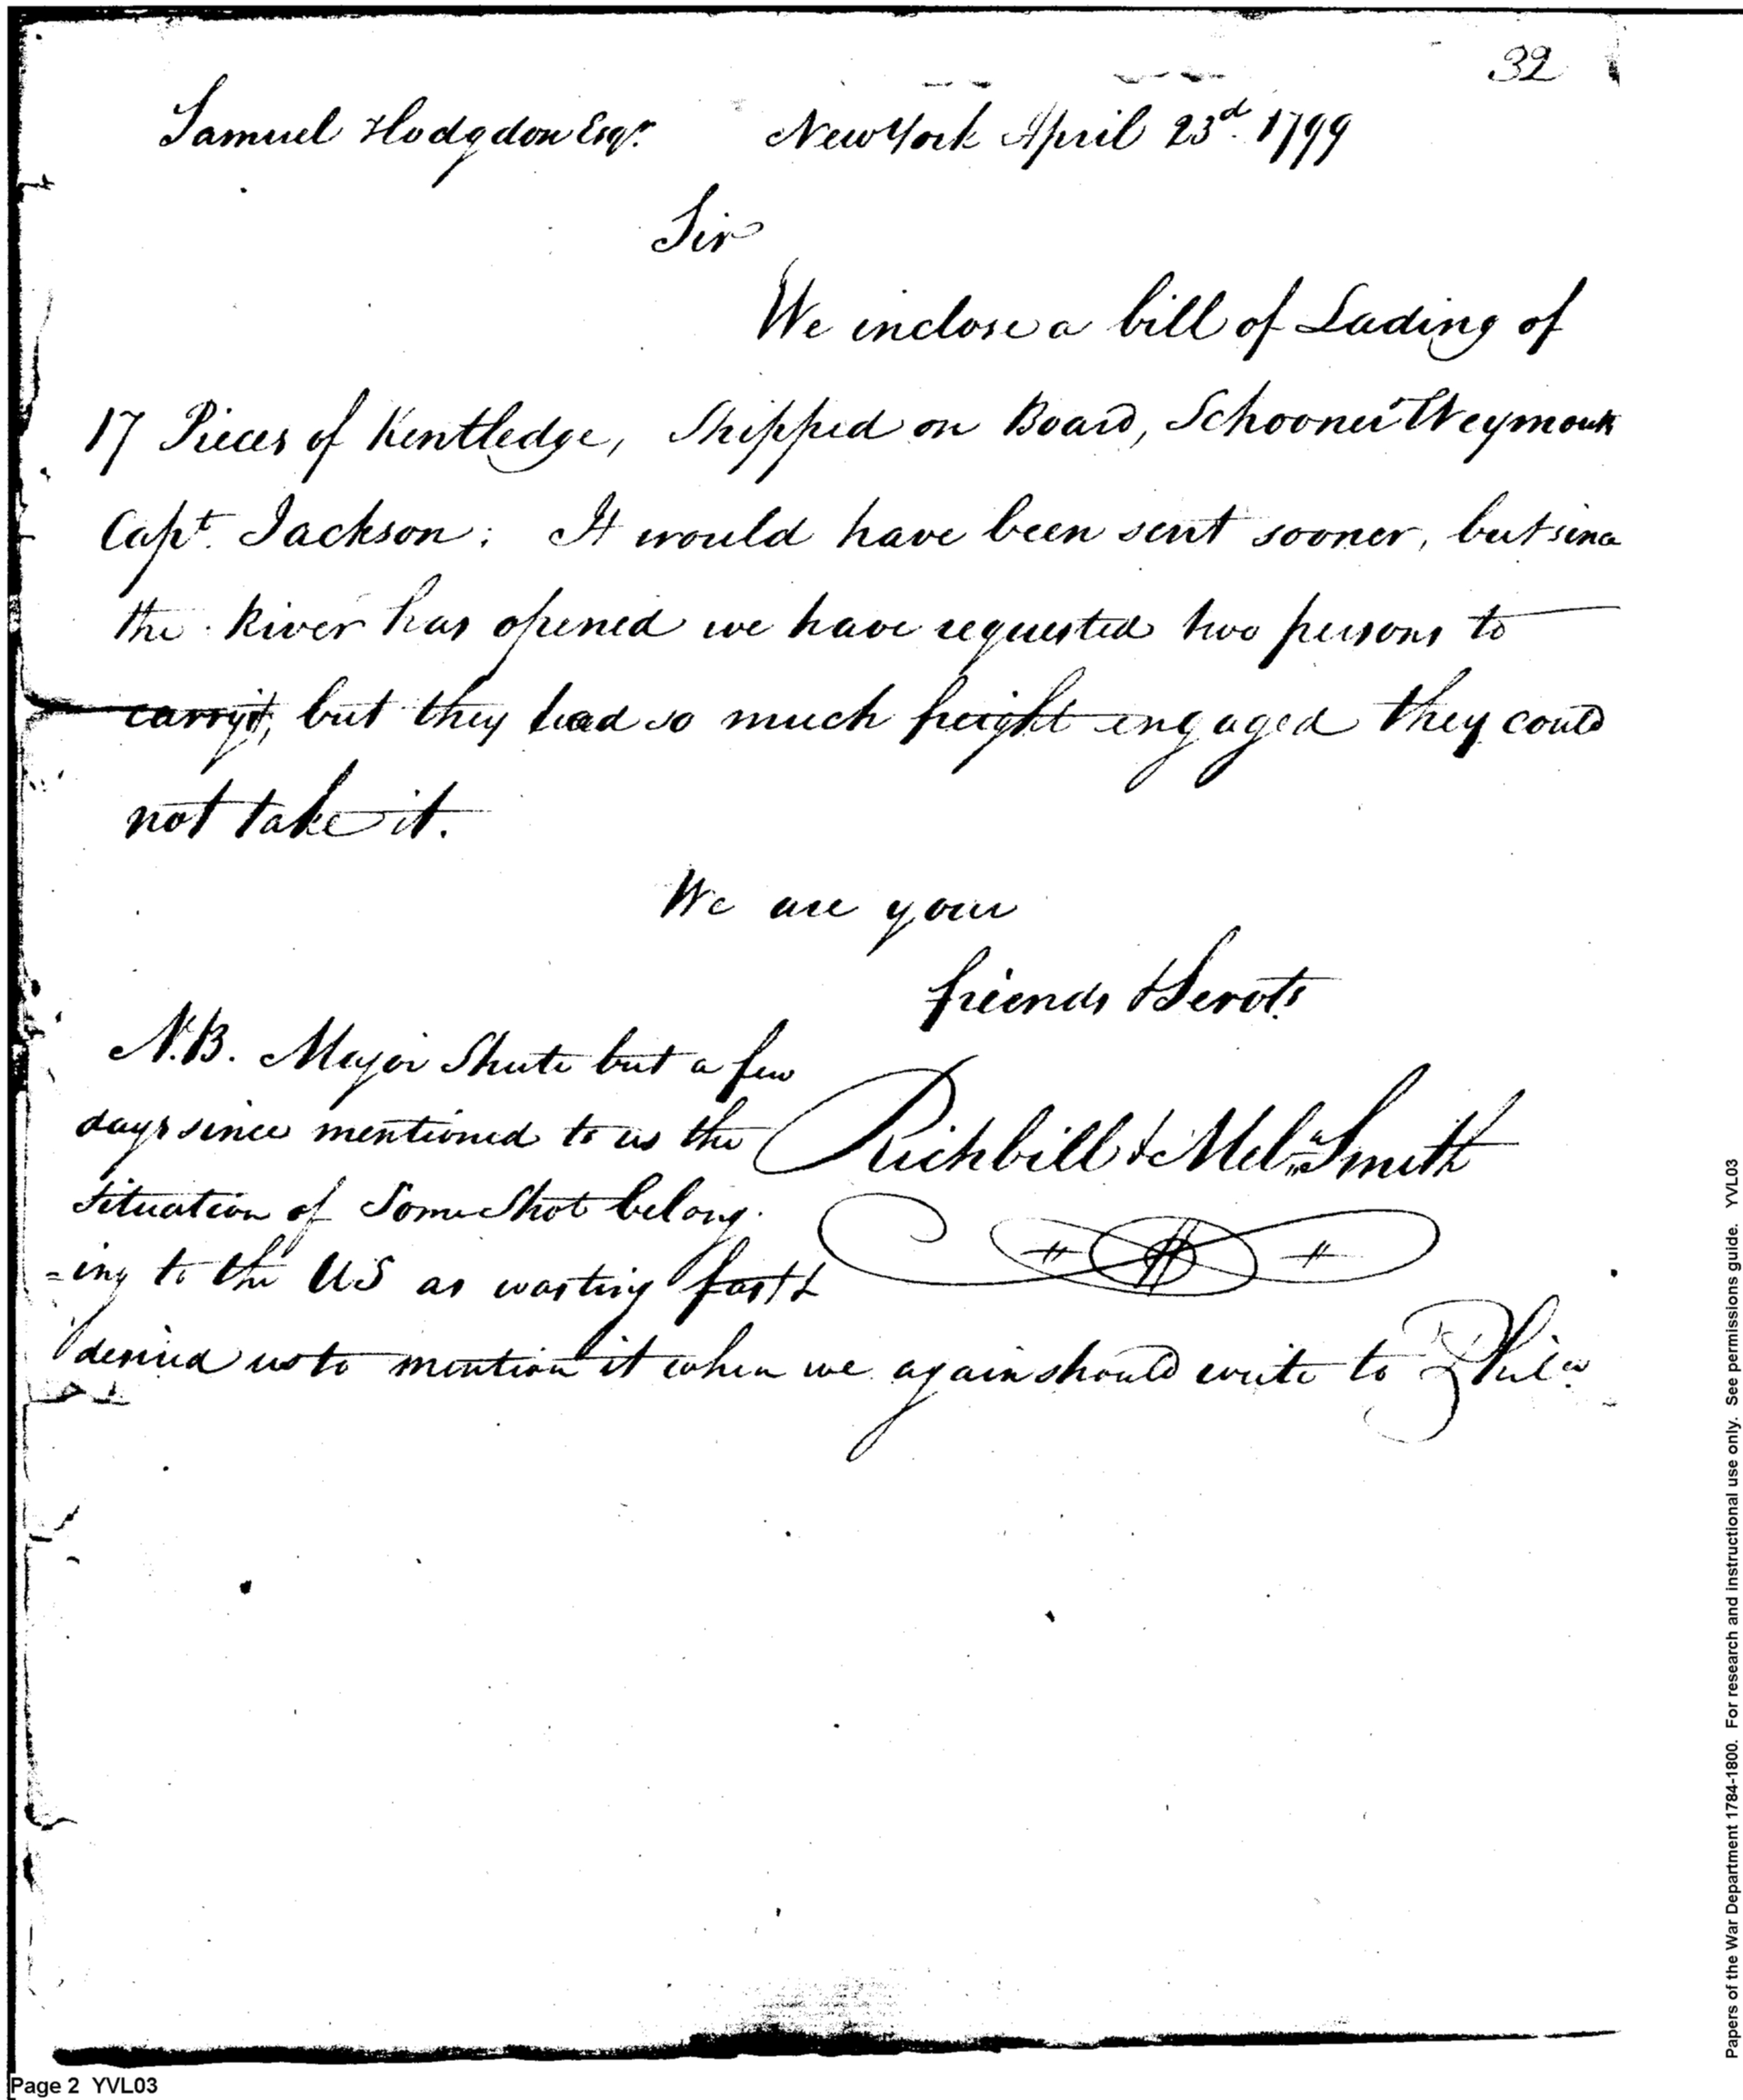 32
Samuel Hodgdon Esqr. New York April 23d. 1799
Sir
We inclose a bill of Lading of
17 Pieces of Kentledge, Shipped on Board, Schooner Weymouth
Capt. Jackson; It would have been sent sooner, but since
the River has opened we have requested two persons to
carry it, but they had so much freight engaged they could
not take it.
We are your
friends & Servts.
Richbill & Mel. Smith
N.B. Major Shute but a few
days since mentioned to us the
situation of some Shot belong-
=ing to the US as wasting fast &
desired us to mention it when we again should write to Phila.
Papers of the War Department 1784-1800. For research and instructional use only. See permissions guide. YVL03
Page 2 YVL03